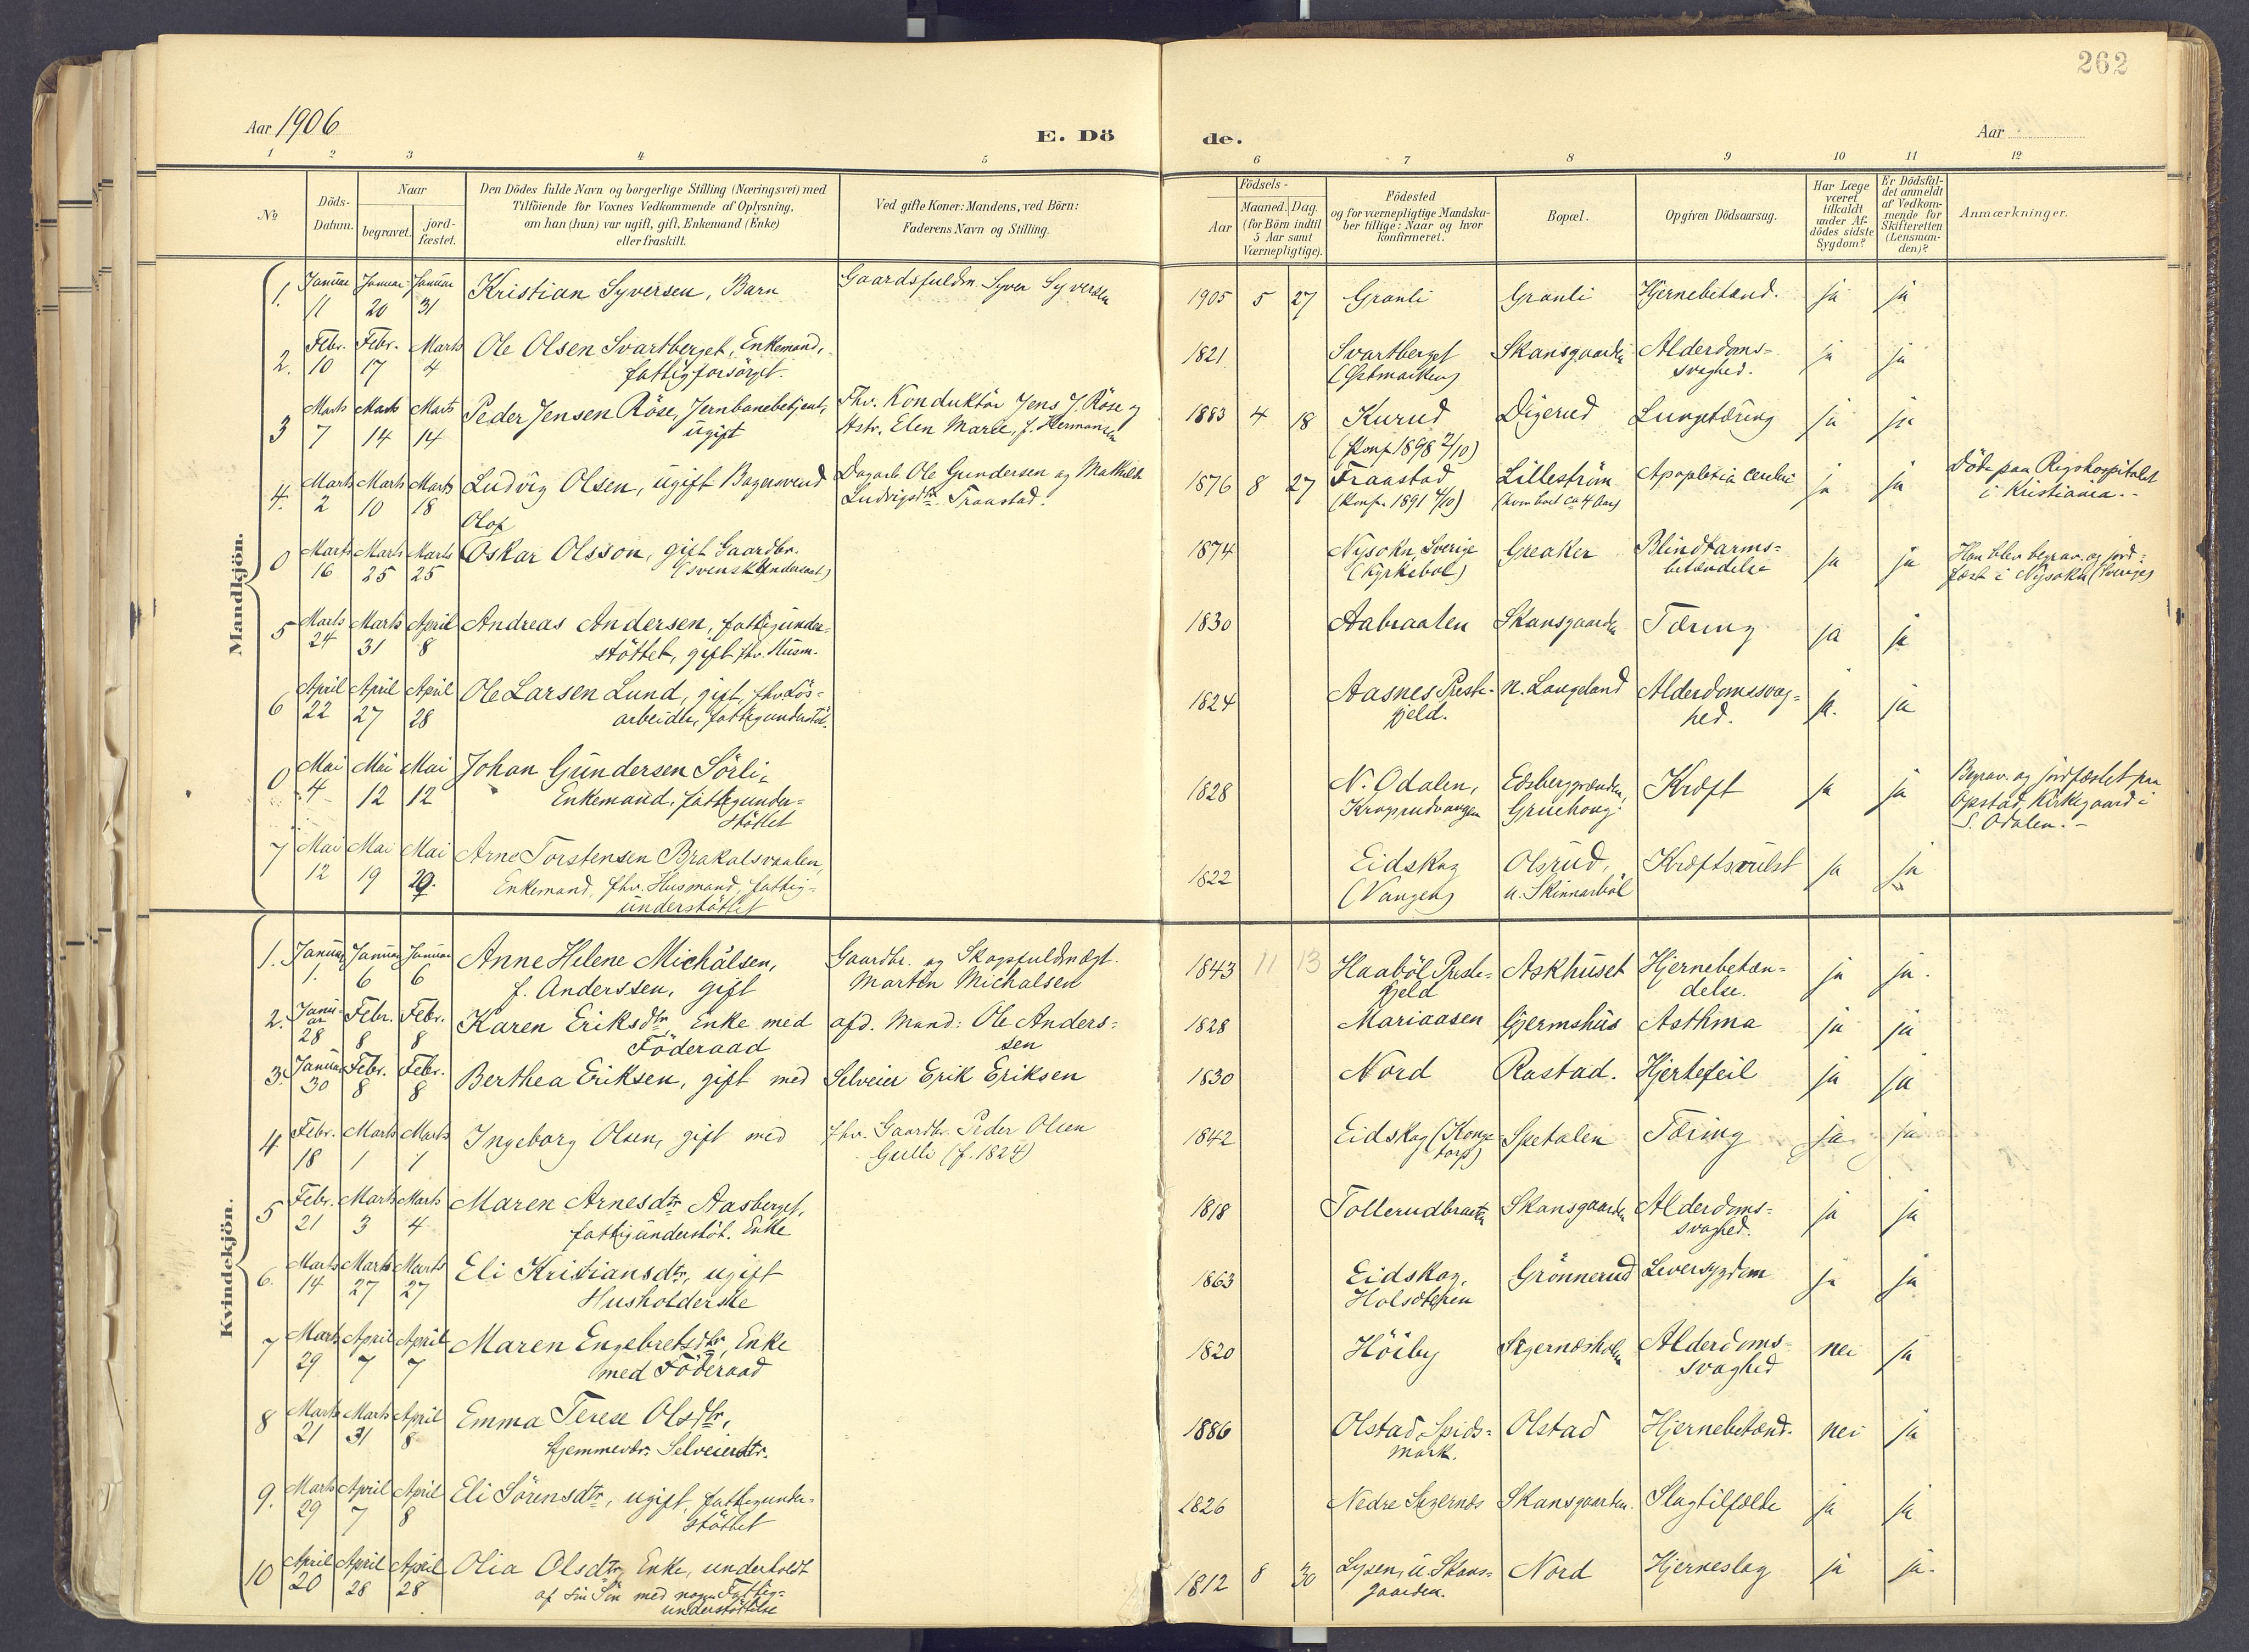 262
Aar 1906
E. Dö
de.
Aar
1 2 3 4 5 6 7 8 9 10 11 12
№
Döds-
Datum.
Naar
begravet.
jord-
fæstet.
Den Dödes fulde Navn og borgerlige Stilling (Næringsvei) med
Tilföiende for Voxnes Vedkommende af Oplysning,
om han (hun) var ugift, gift, Enkemand (Enke)
eller fraskilt.
Ved gifte Koner: Mandens, ved Börn:
Faderens Navn og Stilling.
Födsels-
Aar
Maaned. Dag.
(for Börn indtil
5 Aar samt
Værnepligtige).
Födested
og for værnepligtige Mandska-
ber tillige: Naar og hvor
konfirmeret.
Bopæl.
Opgiven Dödsaarsag.
Har Læge
været
tilkaldt
under Af-
dödes sidste
Sygdom?
Er Dödsfal-
det anmeldt
af Vedkom-
mende for
Skifteretten
(Lensman-
den)?
Anmærkninger.
Mandkjön.
1. Januar Januar Januar Kristian Syversen, Barn Gaardsfuldm. Syver Syversen 1905 5 27 Granli Granli Hjernebetænd. ja ja
11 20 31
2. Febr. Febr. Marts Ole Olsen Svartberget, Enkemand, 1821 Svartberget Skansgaarden Alderdoms- ja ja
10 17 4 fattigforsörget. (Östmarken) svaghed.
3 Marts Marts Marts Peder Jensen Röse, Jernbanebetjent, Fhv. Konduktör Jens J. Röse og 1883 4 18 Kurud Digerud Lungetæring ja ja
7 14 14 ugift Hstr. Elen Marie, f. Hermansen (Konf 1898 2/10)
4. Marts Marts Marts Ludvig Olsen, ugift Bagersvend Dagarb. Ole Gundersen og Mathilde 1876 8 27 Fraastad Lilleström Apoplexia cerebri ja ja Döde paa Rigshospitalet
2 10 18 Ludvigsdtr. Fraastad. (Konf. 1891 4/10) (hvor boet ca 4 Aar) i Kristiania.-
Olof
0 Marts Marts Marts Oskar Olsson, gift Gaardbr. 1874 Nysokn, Sverige Greaker Blindtarms- ja ja Han blev begrav. og jord-
16 25 25 (svensk Undersaat) (Kyrkebol) betændelse fæst i Nysokn (Sverige)
5 Marts Marts April Andreas Andersen, fattigunder- 1830 Aabraaten Skansgaarden Tæring ja ja
24 31 8 støttet, gift fhv. Husm.
6 April April April Ole Larsen Lund, gift, fhv. Lös- 1824 Aasnes Preste- N. Langeland Alderdomssvag- ja. ja
22 27 28 arbeider, fattigunderstöt. gjeld. hed.
0 Mai Mai Mai Johan Gundersen Sörli, 1828 N. Odalen, Edsberggrænden, Kræft ja ja Begrav. og jordfæstet paa
4 12 12 Enkemand, fattigunder- Kroprudvangen Gruehoug. Opstad Kirkegaard i
støttet S. Odalen.-
7 Mai Mai Mai Arne Torstensen Brakalsvaalen, 1822 Eidskog Olsrud, Kræftsvulst ja ja
12 19 29. Enkemand, fhv. Husmand, fattig- (Vangen) u. Skinnarböl
understöttet
Kvindekjön.
1. Januar Januar Januar Anne Helene Michälsen, Gaardbr. og Skogsfuldmægt. 1843 11 13 Haaböl Preste- Askhuset Hjernebetæn- ja ja.
1. 6 6 f. Anderssen, gift Marten Michalsen gjeld delse.
2. Janu- Febr. Febr. Karen Eriksdtr. Enke med afd. Mand: Ole Anders- 1828 Mariaasen Gjermshus Asthma ja ja
ar 28 8 8 Föderaad sen
3. Januar Febr. Febr. Berthea Eriksen, gift med Selveier Erik Eriksen 1830 Nord Rastad. Hjertefeil ja ja
30 8 8
4 Febr. Marts Marts Ingeborg Olsen, gift med fhv. Gaardbr. Peder Olsen 1842 Eidskog (Kongs- Spetalen Tæring ja ja
18 1 1 Gulli (f. 1824) torp)
5 Febr. Marts Marts Maren Arnesdtr Aasberget, 1818 Tollerudbraaten Skansgaarden Alderdoms- ja ja
21 3 4 fattigunderstöt. Enke svaghed.
6. Marts Marts Marts Eli Kristiansdtr, ugift 1863 Eidskog, Grönnerud Leversygdom ja ja
14 27 27 Husholderske Holsæteren
7 Marts April April Maren Engebretsdtr, Enke 1820 Höiby Skjernesholen Alderdoms- nei ja
29 7 7 med Föderaad svaghed
8 Marts Marts April Emma Terese Olsdtr, 1886 Olstad, Spids- Olstad Hjernebetænd. nei ja
21 31 8 hjemmevær. Selveierdtr. mark.
9. Marts April April Eli Sörensdtr, ugift, fattigunder- 1826 Nedre Skjernes Skansgaarden. Slagtilfælde ja ja
29 7 8 støttet
10 April April April Olia Olsdtr, Enke, underholdt 1812 8 30 Lysen, u. Skans- Nord Hjerneslag ja ja.
20 28 28 af sin Sön med nogen Fattig- gaarden.
understøttelse